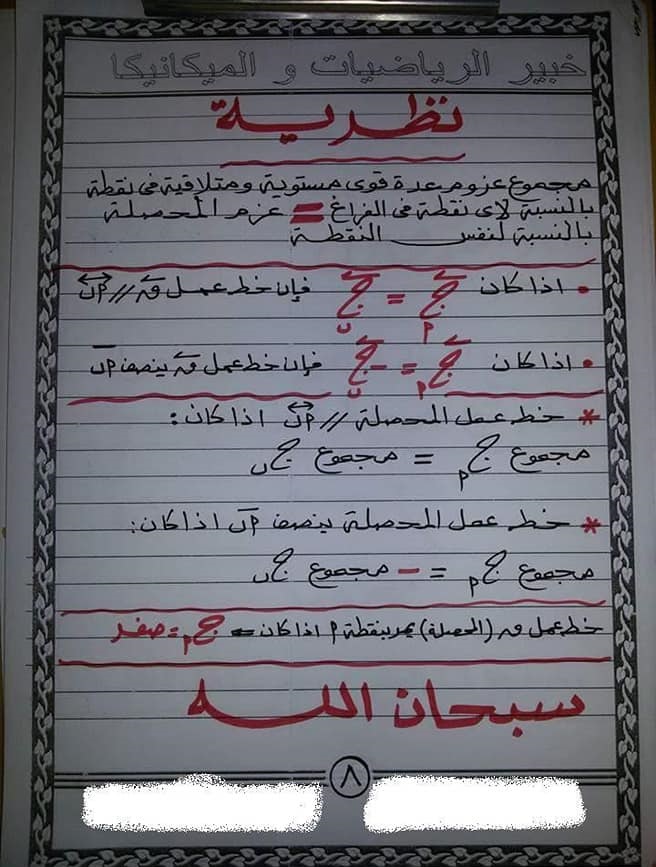 خبير الرياضيات و الميكانيكا
نظرية
مجموع عزوم عدة قوى مستوية ومتلاقية فى نقطة
بالنسبة لاى نقطة فى الفراغ = عزم المحصلة
بالنسبة لنفس النقطة
• اذا كان ج م = ج ب فإن خط عمل ق // م ب
• اذا كان ج م = - ج ب فإن خط عمل ق ينصف م ب
* خط عمل المحصلة // م ب اذا كان :
مجموع ج م = مجموع ج ب
* خط عمل المحصلة ينصف م ب اذا كان :
مجموع ج م = - مجموع ج ب
خط عمل ق (المحصلة) يمر بنقطة م اذا كان ج م = صفر
سبحان الله
٨